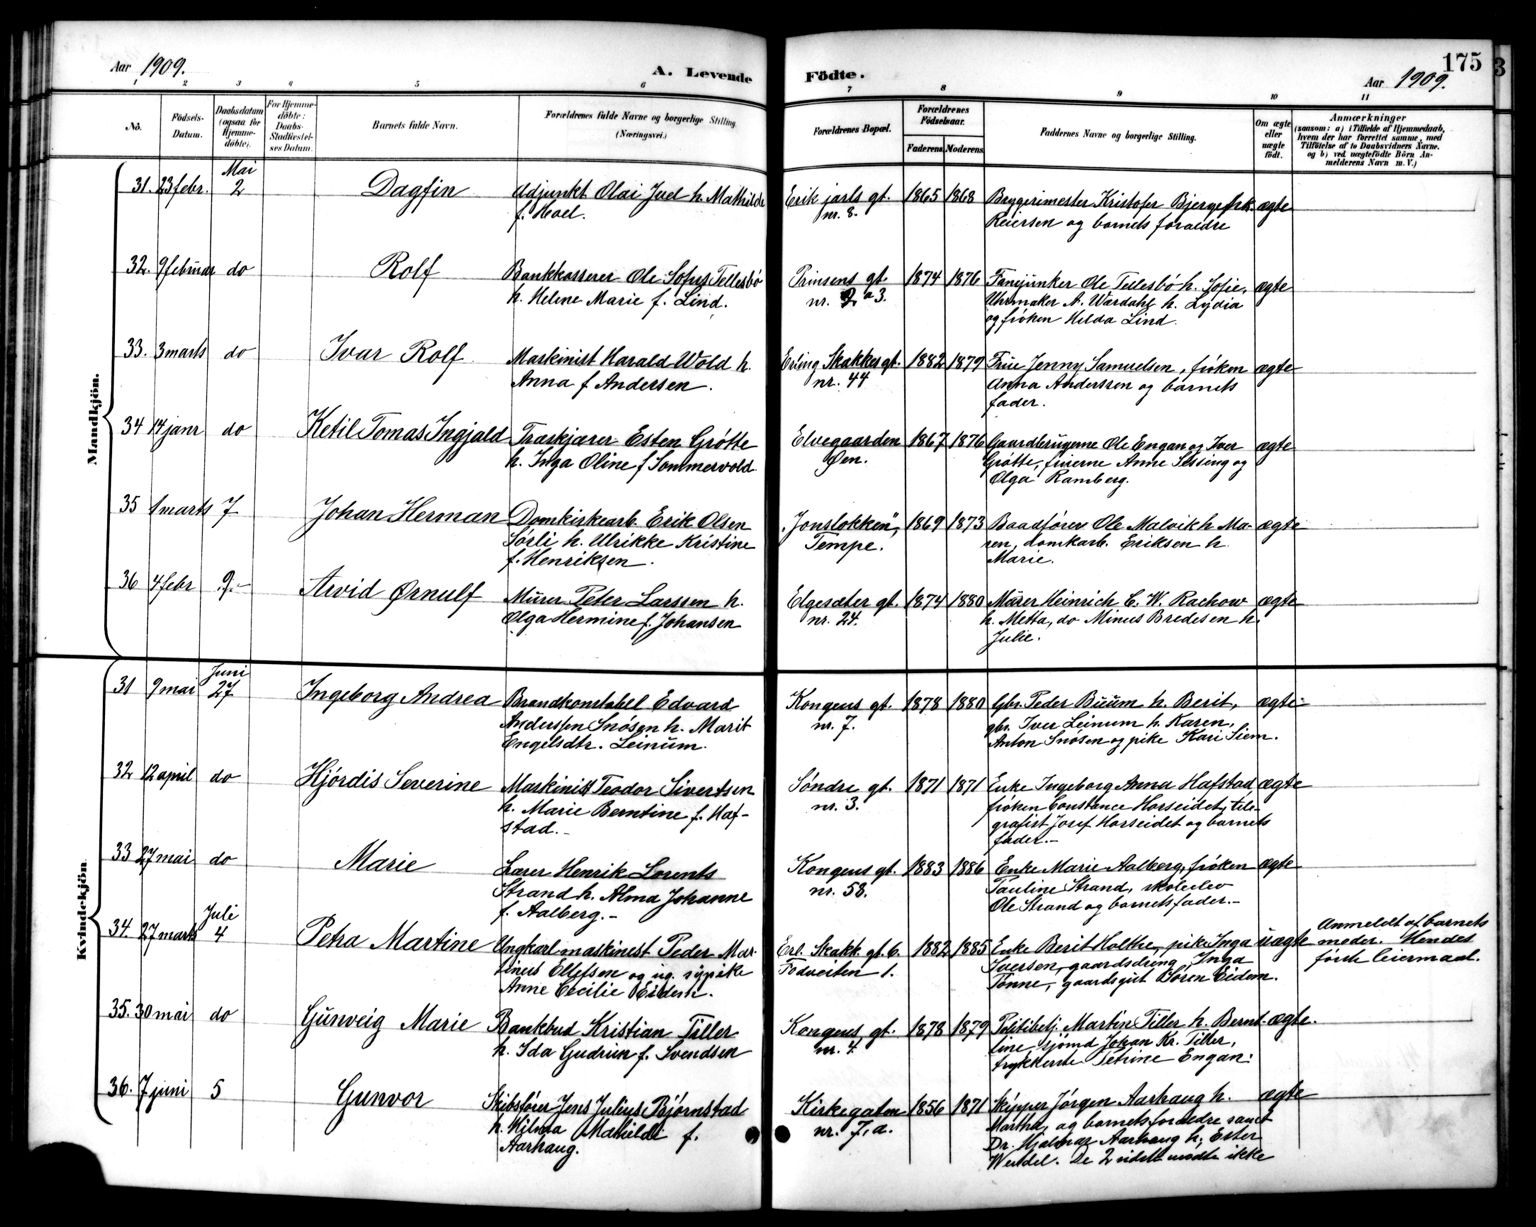 175
Aar 1909.
A. Levende
Fødte.
Aar 1909.
1 2 3 4 5 6 7 8 9 10 11
No.
Fødsels-
Datum.
Daabsdatum
(ogsaa for
Hjemme-
døbte).
For Hjemme-
døbte:
Daabs-
Stadfæstel-
ses Datum.
Barnets fulde Navn.
Forældrenes fulde Navne og borgerlige Stilling
(Næringsvei.)
Forældrenes Bopæl.
Forældrenes
Fødselsaar.
Faderens. Moderens.
Faddernes Navne og borgerlige Stilling.
Om ægte
eller
uægte
født.
Anmærkninger
(saasom: a) i Tilfælde af Hjemmedaab,
hvem der har forrettet samme, med
Tilføielse af to Daabsvidners Navne.
og b) ved uægtefødte Børn An-
melderens Navn m. V.)
Mandkjøn.
31. 23 febr. Mai 2 Dagfin Adjunkt Olai Juel h. Mathilde
f. Hoel.
Erik jarls gt.
nr. 8.
1865 1868
Bryggerimester Kristofer Bjerge, frk.
Reiersen og barnets forældre
ægte
32. 9 februar do Rolf Bankkasserer Ole Sofus Tellesbö
h. Helene Marie f. Lind.
Prinsens gt.
nr. 2 a3.
1874 1876
Fanejunker Ole Tellesbö h. Sofie,
Uhrmaker A. Wærdahl h. Lydia
og frøken Hilda Lind.
ægte
33. 3 marts do Ivar Rolf Maskinist Harald Wold h.
Anna f. Andersen.
Erling Skakkes gt.
nr. 44
1882 1879
Frue Jenny Samuelsen, frøken
Anna Anderssen og barnets
fader.
ægte
34 14 janr do Ketil Tomas Ingjald Træskjærer Esten Grötte
h. Inga Oline f. Sommervold
Elvegaarden
Øen.
1867 1876
Gaardbrugerne Ole Engan og Iver
Grötte, fruerne Anne Sessing og
Olga Ramberg.
ægte
35 1 marts 7 Johan Herman Domkirkearb. Erik Olsen
Sorli h. Ulrikke Kristine
f. Henriksen.
"Jonslökken",
Tempe.
1869 1873
Baadfører Ole Malvik h. Ma-
ren, domkarb. Eriksen h.
Marie.
ægte
36 4 febr 9.- Arvid Ørnulf Murer Peter Larssen h.
Olga Hermine f. Johansen
Elgesæter gt.
nr. 24.
1874 1880
Murer Heinrich C. W. Rachow
h. Metta, do Minus Bredesen h.
Julie.
ægte
Kvindekjøn.
31 9 mai Juni 27 Ingeborg Andrea Brandkonstabel Edvard
Anderssen Snösen h. Marit
Engelsdtr. Leinum.
Kongens gt.
nr. 7.
1878 1880
Gbr. Peder Buum h. Berit,
gbr. Iver Leinum h. Karen,
Anton Snösen og pike Kari Siem.
ægte
32 12 april do Hjördis Severine Maskinist Teodor Sivertsen
h. Marie Berntine f. Haf-
stad.-
Söndre gt.
nr. 3.
1871 1871
Enke Ingeborg Anna Hafstad
frøken Constance Horseidet, tele-
grafist Josef Horseidet og barnets
fader.-
ægte
33 27 mai do Marie Lærer Henrik Lorents
Strand h. Alma Johanne
f. Aalberg.-
Kongens gt.
nr. 58.
1883 1886
Enke Marie Aalberg, frøken
Pauline Strand, skoleelev
Ole Strand og barnets fader.-
ægte
34. 27 marts Juli 4 Petra Martine Ungkarl maskinest Peder Mar-
tinus Ellefsen og ug. sypike
Anne Cecilie Eidem.
Erl. Skakk. gt. 6.
Fodveiten 1.
1882 1885
Enke Berit Holthe, pike Inga
Iversen, gaardsdreng Inga
Tønne, gaardsgut Sören Eidem.
uægte
Anmeldt af barnets
moder. Hendes
første leiermaal.
35. 30 mai do Gunveig Marie Bankbud Kristian Tiller
h. Ida Gudrun f. Svendsen
Kongens gt.
nr. 4.
1878 1879
Politibetj. Martin Tiller h. Bernt-
tine, sjömd Johan Kr. Tiller,
trykkerne Petrine Engan.
ægte.
36. 7 juni 5 Gunvor Skibsfører Jens Julius Björnstad
h. Hilma Mathilde f.
Aarhaug.
Kirkegaten
nr. 7, a.
1856 1871
Skipper Jörgen Aarhaug h.
Martha, og barnets forældre samt
Dr. Hjalmar Aarhaug h. Ester
Weidel. De 2 sidste mødte ikke
ægte